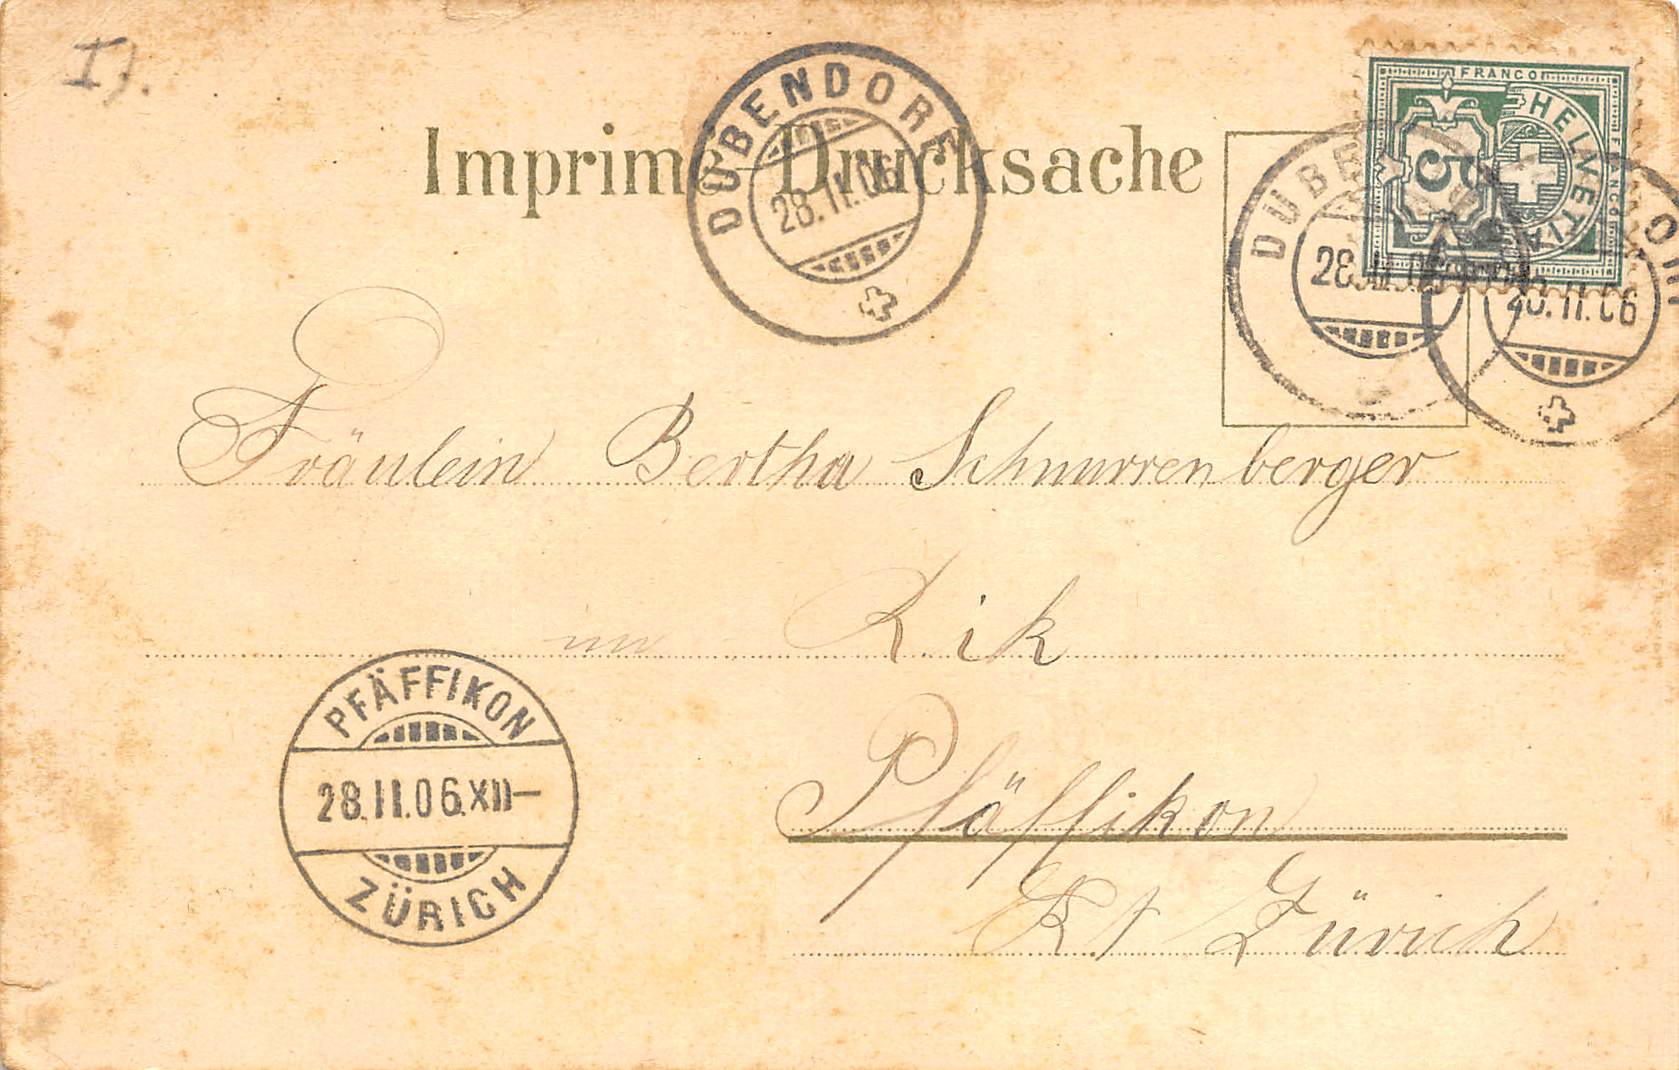 I).
Imprimé-Drucksache
DÜBENDORF
28.II.06
FRANCO
HELVETIA
FRANCO
5
DÜBE
28.II.06
28.II.06
Fräulein Bertha Schnurrenberger
in Rik
PFÄFFIKON
28.II.06.XII–
ZÜRICH
Pfäffikon
Kt Zürich